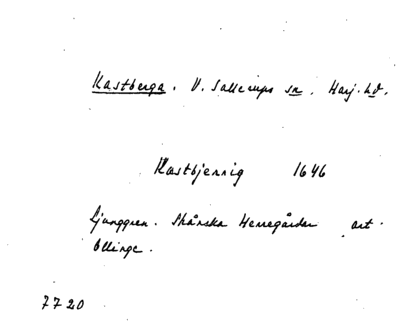 Kastberga. V. Sallerups sn. Harj. hd.
Kastbjernig 1646
Ljunggren. Skånska Herregårdar art.
Ellinge.
7720